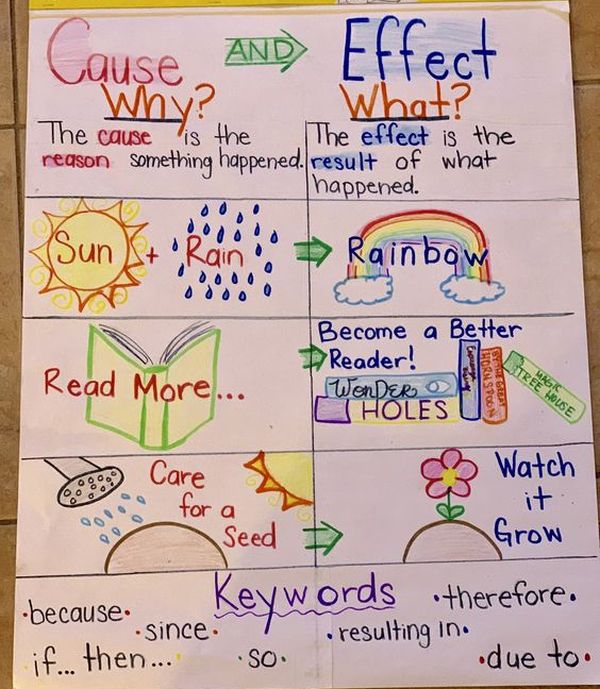 Cause AND Effect
Why?
The cause is the
reason something happened.
What?
The effect is the
result of what
happened.
Sun + Rain
Rainbow
Read More...
Become a Better
Reader!
WONDER
HOLES
MAGIC
TREE HOUSE
Care
for a
Seed
Watch
it
Grow
Keywords
•because•
•since•
if... then...•
•so•
•therefore•
•resulting in•
•due to•